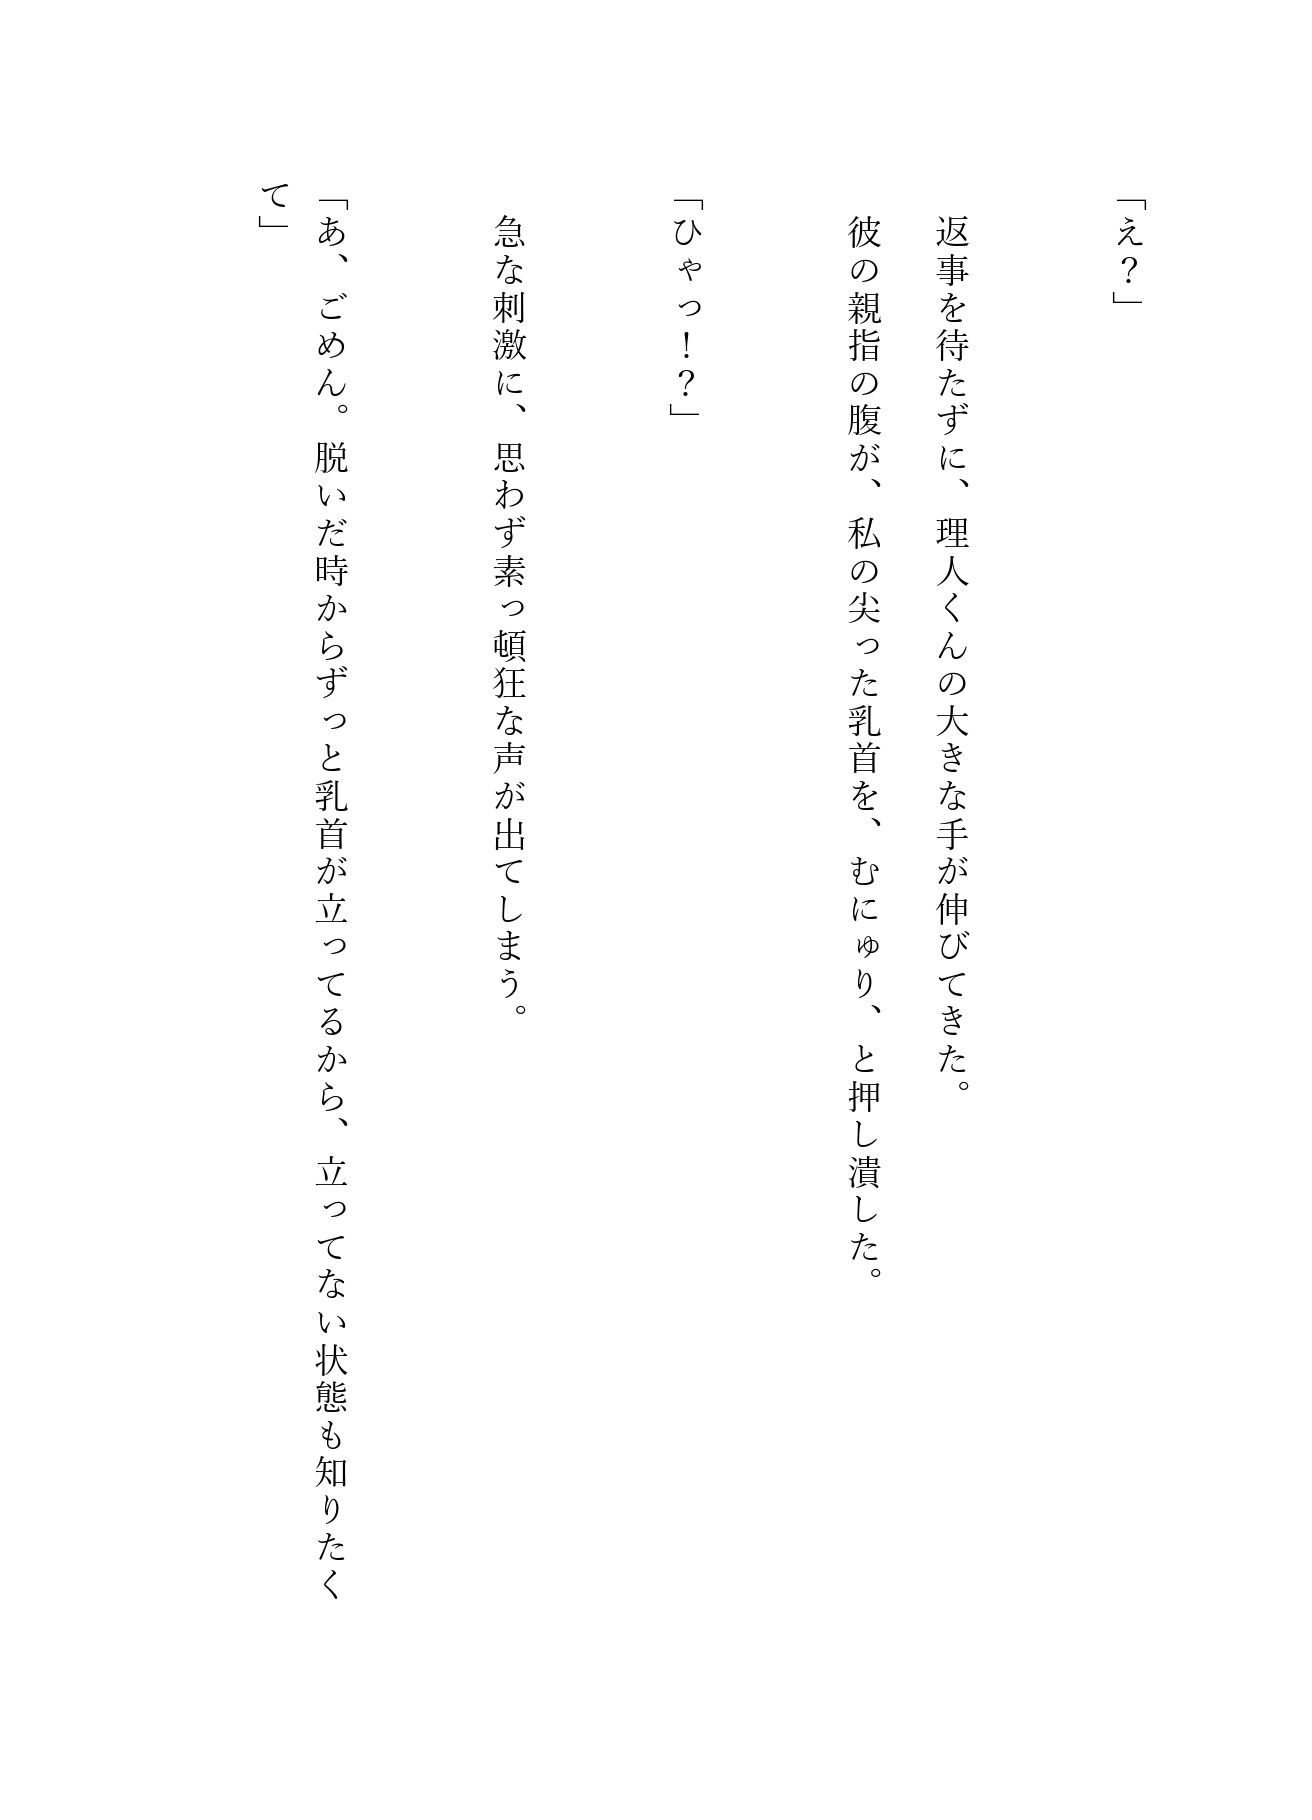 「え？」
　返事を待たずに、理人くんの大きな手が伸びてきた。
　彼の親指の腹が、私の尖った乳首を、むにゅり、と押し潰した。
「ひゃっ！？」
　急な刺激に、思わず素っ頓狂な声が出てしまう。
「あ、ごめん。脱いだ時からずっと乳首が立ってるから、立ってない状態も知りたく
て」